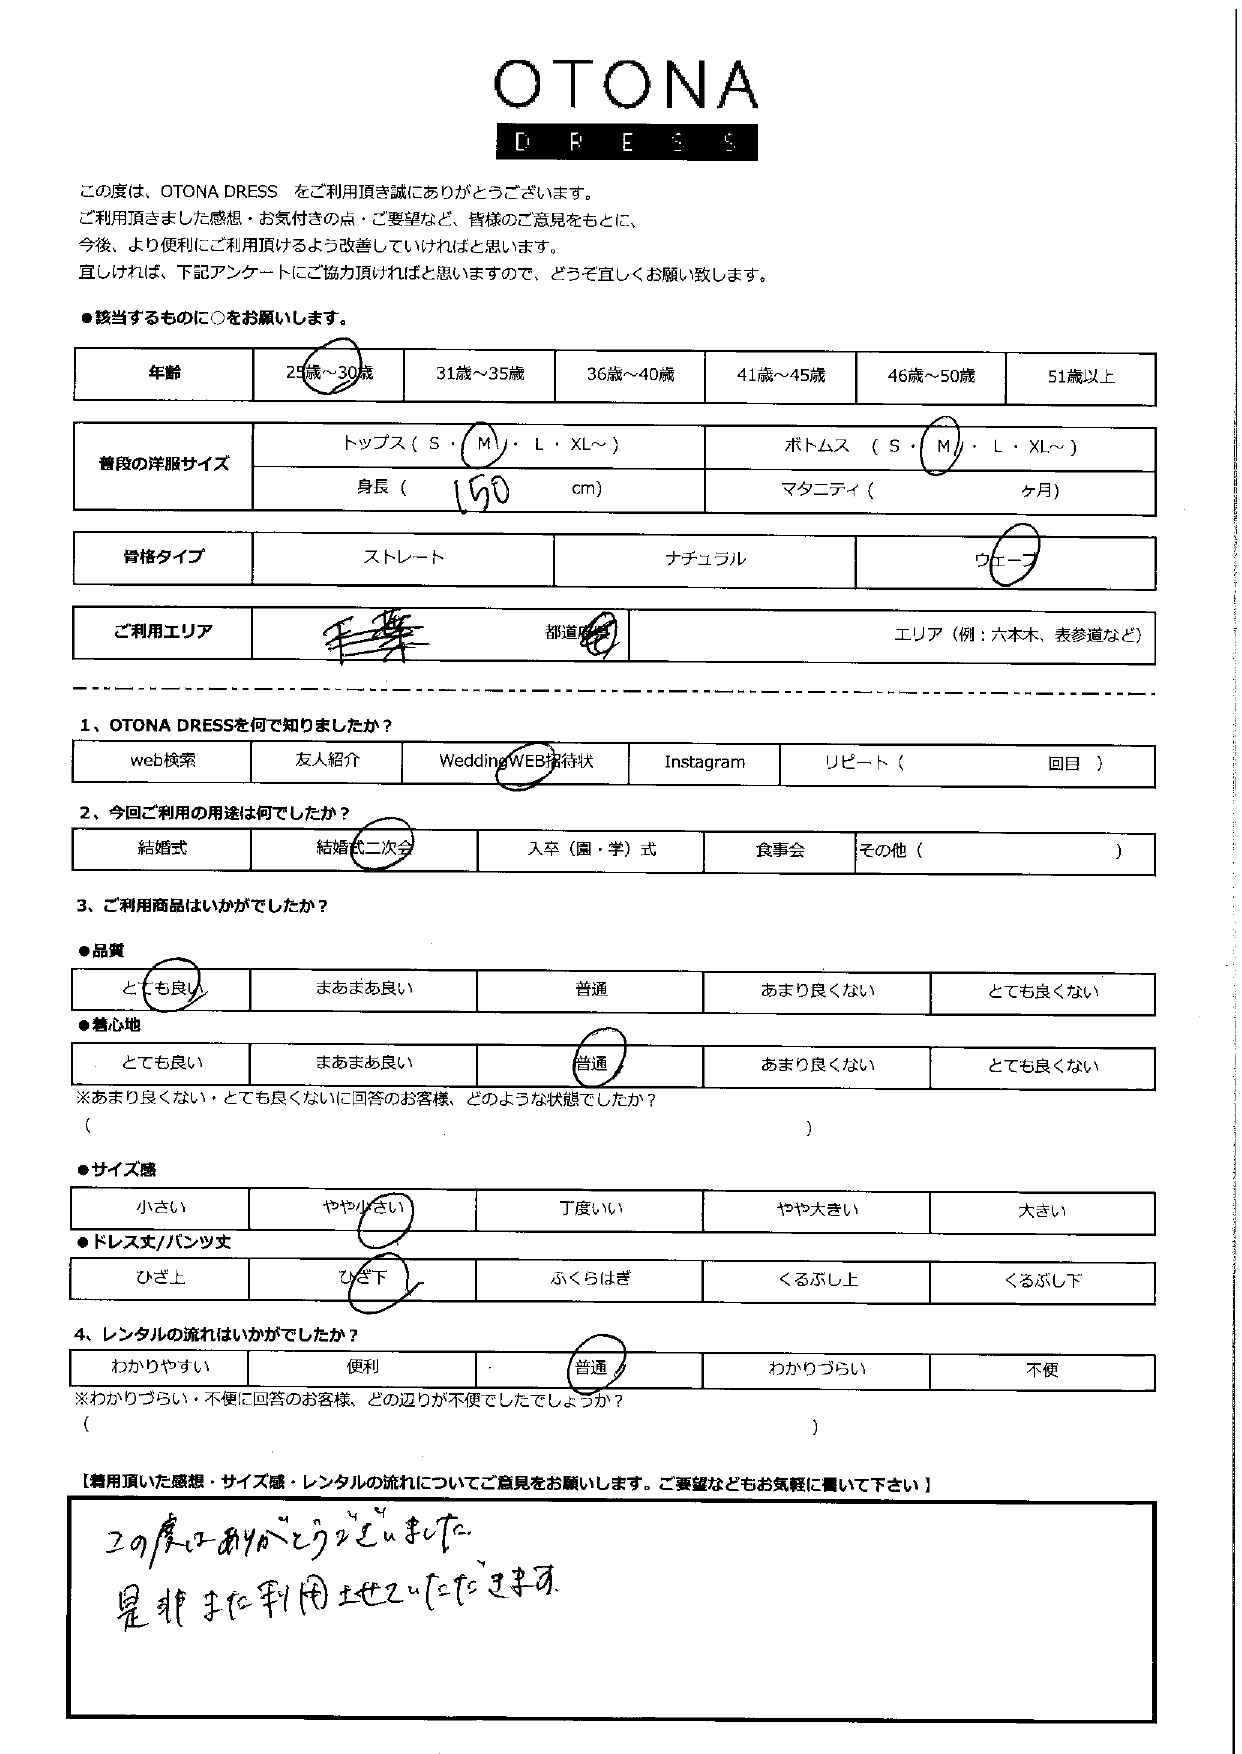 OTONA
DRESS
この度は、OTONA DRESS　をご利用頂き誠にありがとうございます。
ご利用頂きました感想・お気付きの点・ご要望など、皆様のご意見をもとに、
今後、より便利にご利用頂けるよう改善していければと思います。
宜しければ、下記アンケートにご協力頂ければと思いますので、どうぞ宜しくお願い致します。
●該当するものに○をお願いします。
年齢 25歳～30歳 31歳～35歳 36歳～40歳 41歳～45歳 46歳～50歳 51歳以上
普段の洋服サイズ トップス ( S ・ M ・ L ・ XL～ ) ボトムス ( S ・ M ・ L ・ XL～ )
身長 ( 150 cm) マタニティ ( ヶ月)
骨格タイプ ストレート ナチュラル ウェーブ
ご利用エリア 千葉 都道府県 エリア（例：六本木、表参道など）
1、OTONA DRESSを何で知りましたか？
web検索 友人紹介 WeddingWEB招待状 Instagram リピート（ 回目 ）
2、今回ご利用の用途は何でしたか？
結婚式 結婚式二次会 入卒（園・学）式 食事会 その他（ ）
3、ご利用商品はいかがでしたか？
●品質
とても良い まあまあ良い 普通 あまり良くない とても良くない
●着心地
とても良い まあまあ良い 普通 あまり良くない とても良くない
※あまり良くない・とても良くないに回答のお客様、どのような状態でしたか？
( )
●サイズ感
小さい やや小さい 丁度いい やや大きい 大きい
●ドレス丈/パンツ丈
ひざ上 ひざ下 ふくらはぎ くるぶし上 くるぶし下
4、レンタルの流れはいかがでしたか？
わかりやすい 便利 普通 わかりづらい 不便
※わかりづらい・不便に回答のお客様、どの辺りが不便でしたでしょうか？
( )
【着用頂いた感想・サイズ感・レンタルの流れについてご意見をお願いします。ご要望などもお気軽に書いて下さい】
この度はありがとうございました。
是非また利用させていただきます。